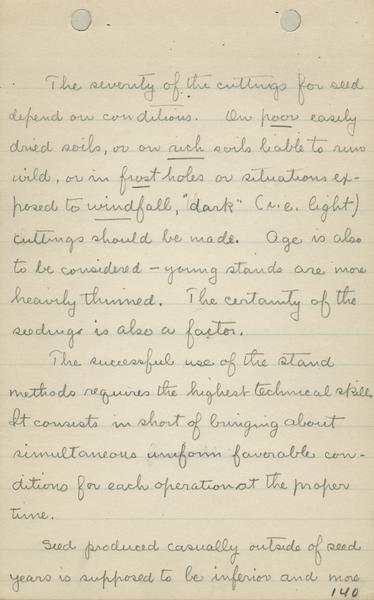 The severity of the cuttings for seed
depend on conditions. On poor easily
dried soils, or on rich soils liable to run
wild, or in frost holes or situations ex-
posed to windfall, "dark" (i.e. light)
cuttings should be made. Age is also
to be considered - young stands are more
heavily thinned. The certainty of the
seedings is also a factor.
The successful use of the stand
methods requires the highest technical skill.
It consists in short of bringing about
simultaneous uniform favorable con-
ditions for each operation at the proper
time.
Seed produced casually outside of seed
years is supposed to be inferior and more
140